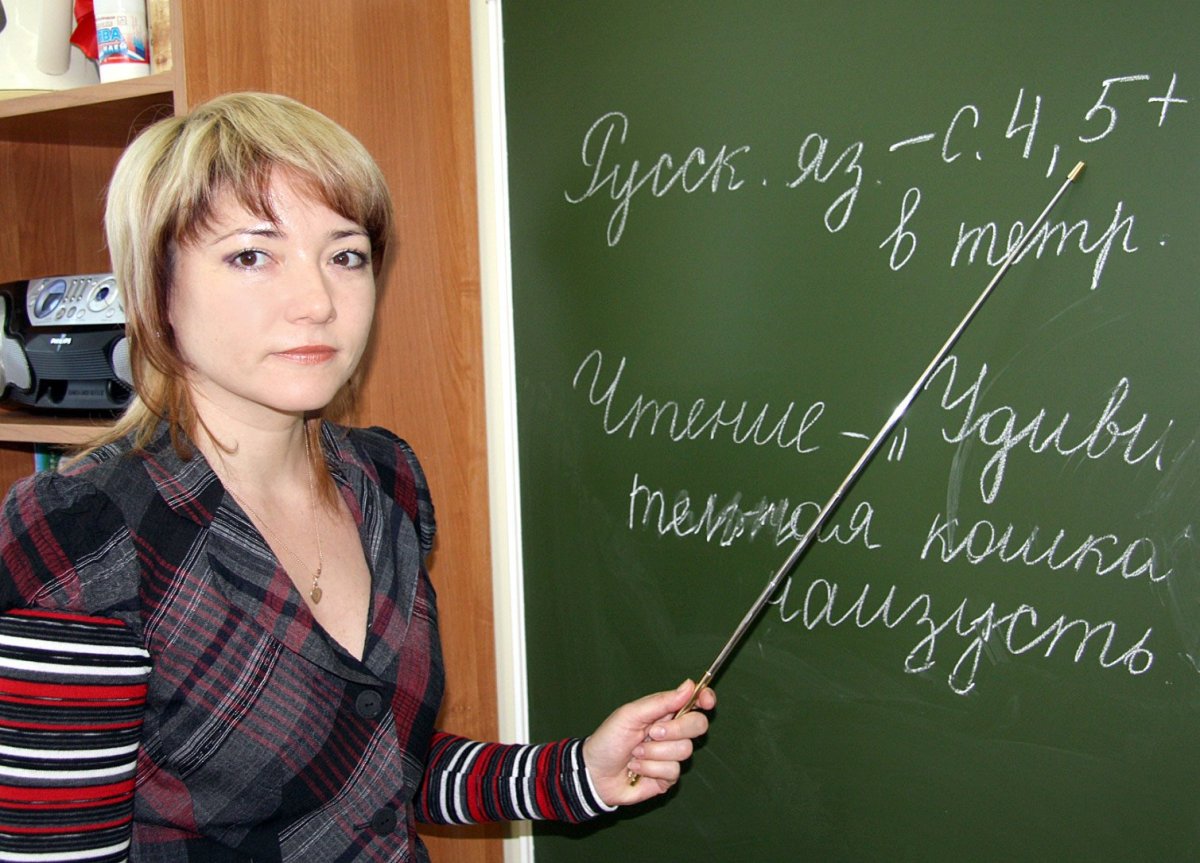 Русск. яз. - с. 4, 5+
в тетр.
Чтение - „Удиви
тельная кошка
наизусть
PHILIPS